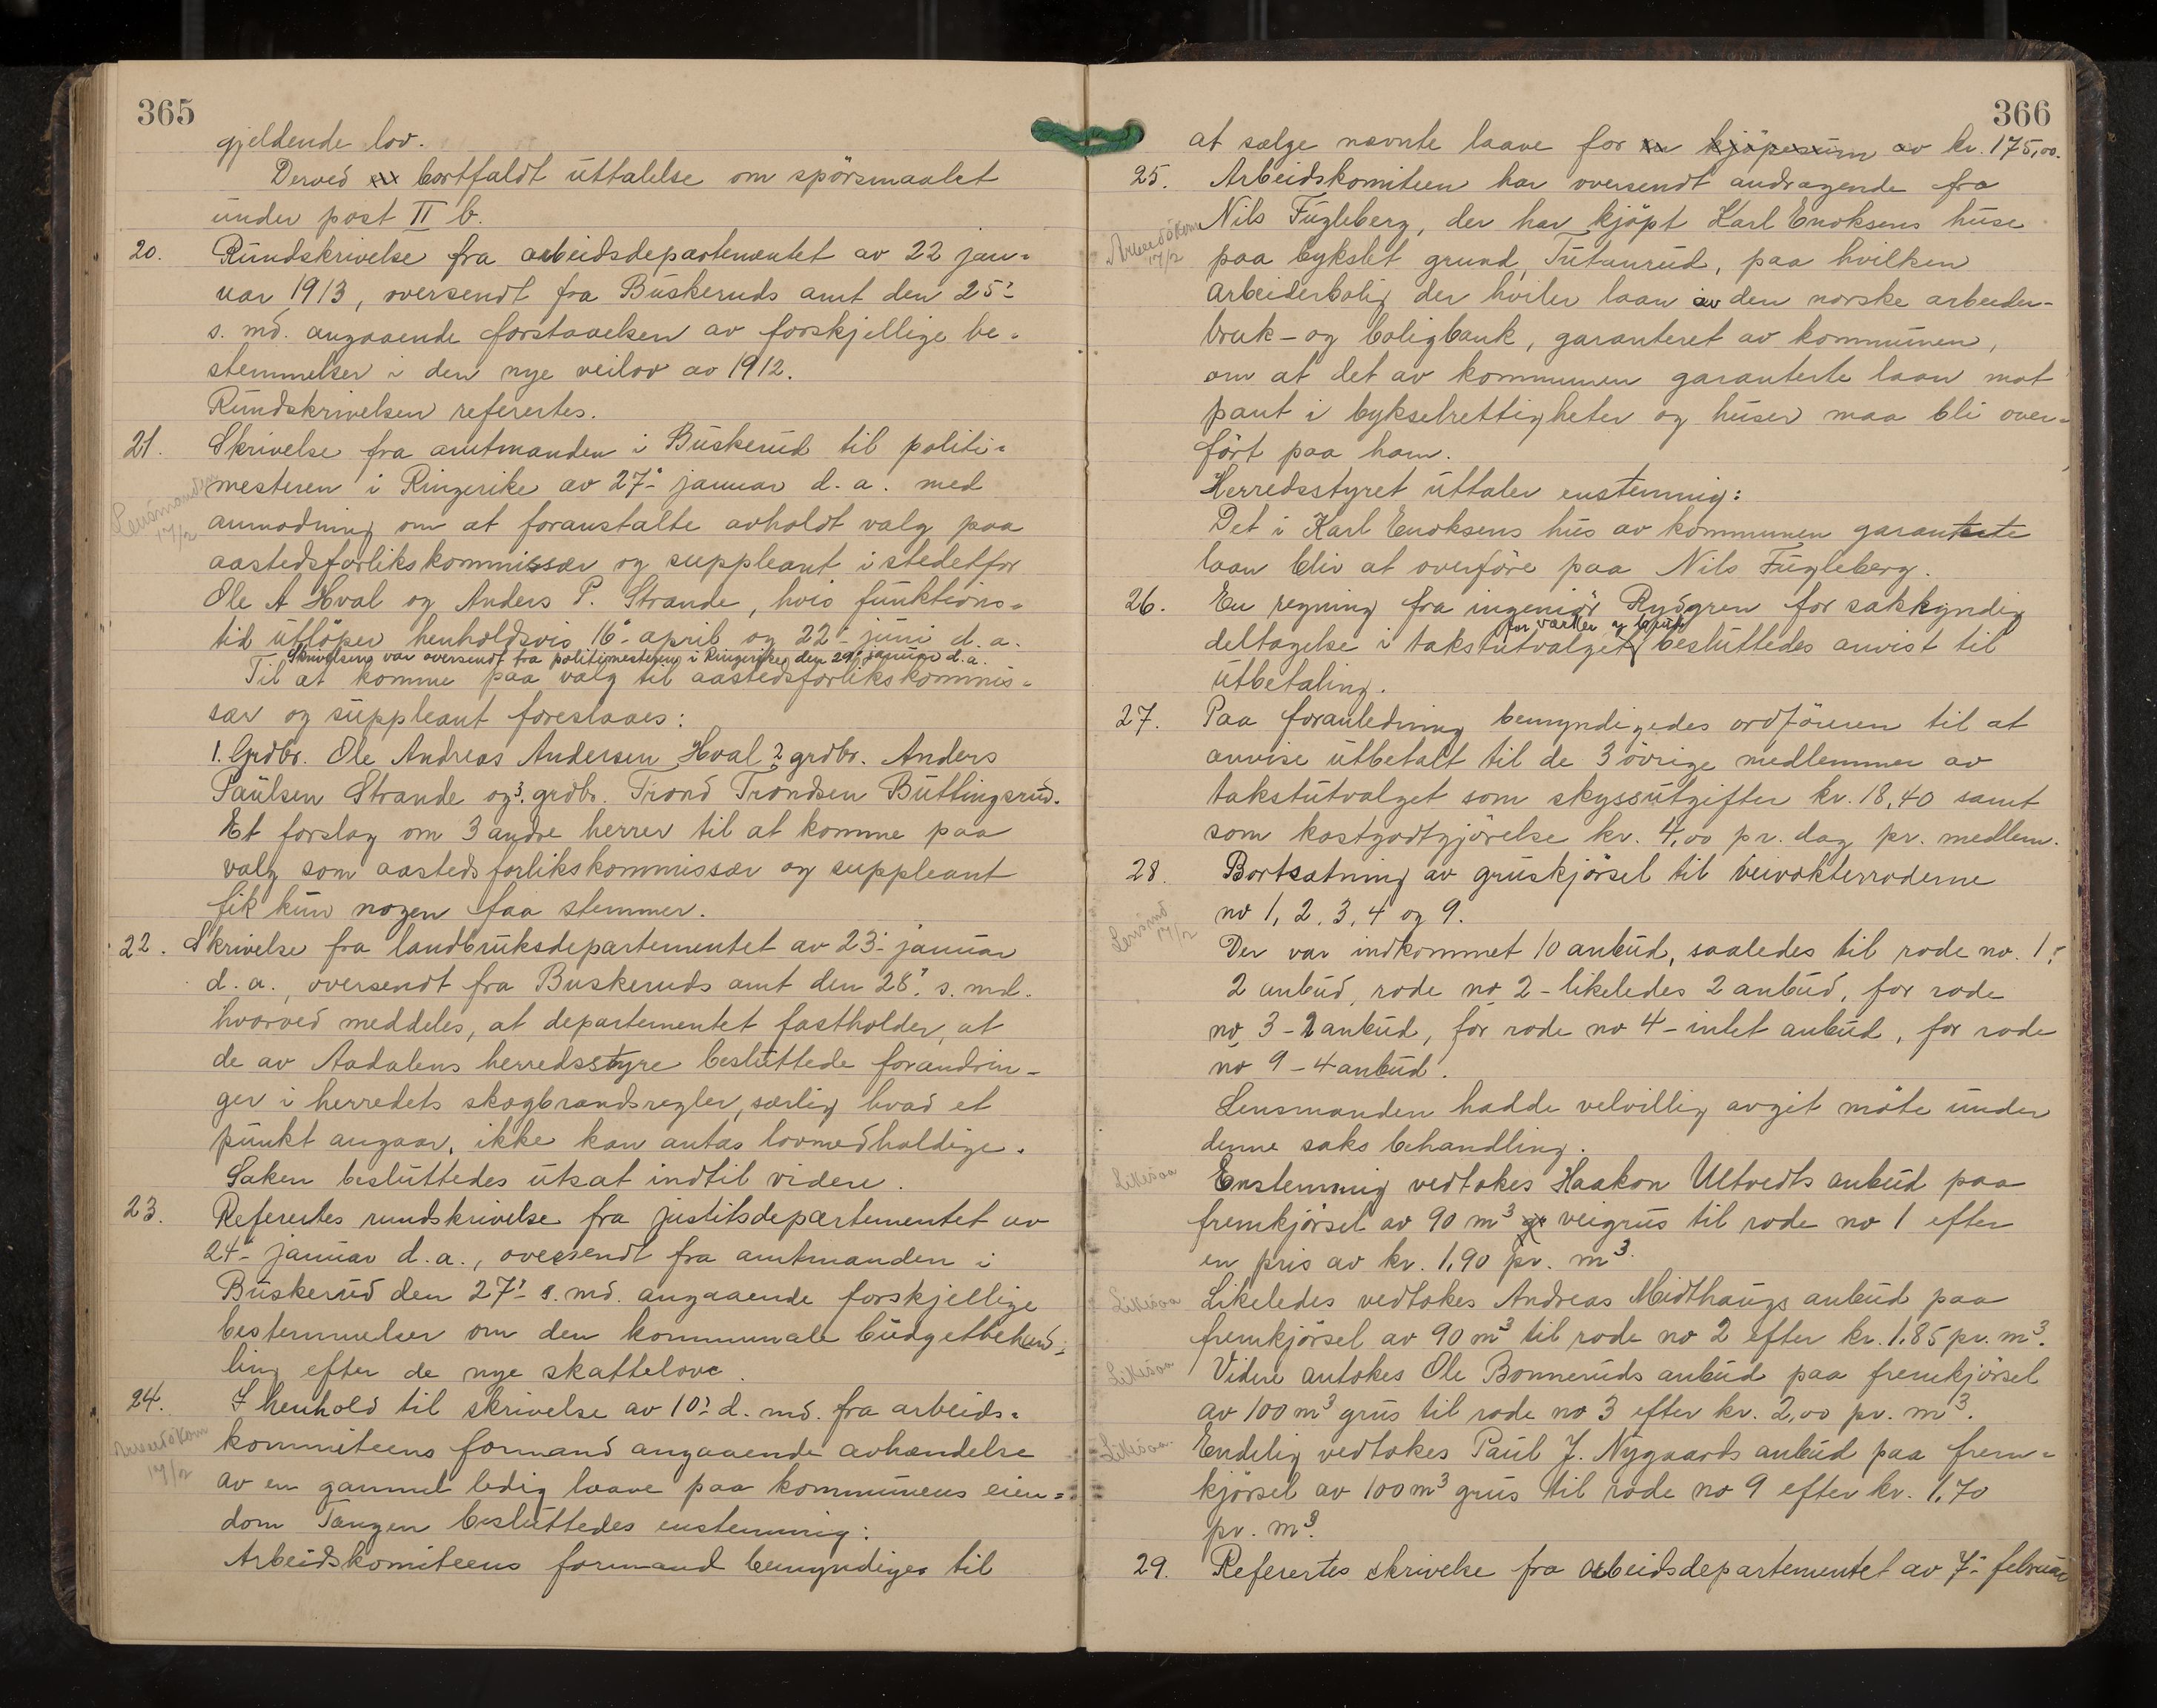 365
gjeldende lov.
Derved bortfaldt uttalelse om spörsmaalet
under post II b.
20. Rundskrivelse fra arbeidsdepartementet av 22 jan-
uar 1913, oversendt fra Buskeruds amt den 25-
s. md. angaaende forstaaelsen av forskjellige be-
stemmelser i den nye veilov av 1912.
Rundskrivelsen refereertes.
21. Skrivelse fra amtmanden i Buskerud til politi-
mesteren i Ringerike av 27- januar d. a. med
Lensmanden
17/2
anmodning om at foranstalte avholdt valg paa
aastedsforlikskommissær og suppleant i stedetfor
Ole A Hval og Anders P. Strande, hvis funktions-
tid utlöper henholdsvis 16- april og 22- juni d. a.
Skrivelsen var oversendt fra politimesteren i Ringerike den 29- januar d. a.
Til at komme paa valg til aastedsforlikskommis-
sær og suppleant foreslaaes:
1. Grdbr. Ole Andreas Andersen Hval 2 grdbr. Anders
Paulsen Strande og 3. grdbr. Trond Trondsen Buttingsrud.
Et forslag om 3 andre herrer til at komme paa
valg som aastedsforlikskommissær og suppleant
fik kun nogen faa stemmer.
22. Skrivelse fra landbruksdepartementet av 23- januar
d. a., oversendt fra Buskeruds amt den 28- s. md.
hvorved meddeles, at departementet fastholder, at
de av Aadalens herredsstyre besluttede forandrin-
ger i herredets skogbrandsregler, særlig hvad et
punkt angaar, ikke kan antas lovmedholdige.
Saken besluttedes utsat indtil videre.
23. Referertes rundskrivelse fra justitsdepartementet av
24- januar d. a., oversendt fra amtmanden i
Buskerud den 27- s. md. angaaende forskjellige
bestemmelser om den kommunale budgetbehand-
ling efter de nye skattelove.
24. I henhold til skrivelse av 10- d. md. fra arbeids-
Arbeidskom
17/2
kommiteens formand angaaende avhændelse
av en gammel ledig laave paa kommunens eien-
dom Tangen besluttedes enstemmig:
Arbeidskomiteens formand bemyndiges til
366
at sælge nævnte laave for en kjöpesum av kr. 175,00.
25. Arbeidskomiteen har oversendt andragende fra
Nils Fugleberg, der har kjöpt Karl Enoksens huse
Arbeidskom
17/2
paa bykslet grund, Tutanrud, paa hvilken
arbeiderbolig der hviler laan av den norske arbeider-
bruk- og boligbank, garanteret av kommunen,
om at det av kommunen garanterte laan mot
pant i bykselrettigheter og huser maa bli over-
fört paa ham.
Herredsstyret uttaler enstemmig:
Det i Karl Enoksens hus av kommunen garanterte
laan blir at overföre paa Nils Fugleberg.
26. En regning fra ingeniör Rydgren for sakkyndig
for værker og bruk
deltagelse i takstutvalget besluttedes anvist til
utbetaling.
27. Paa foranledning bemyndigedes ordföreren til at
anvise utbetalt til de 3 övrige medlemmer av
takstutvalget som skyssutgifter kr. 18,40 samt
som kostgodtgjörelse kr. 4,00 pr. dag pr. medlem.
28. Bortsætning av gruskjörsel til veivokterroderne
Lensmd
17/2
no 1, 2, 3, 4 og 9.
Der var indkommet 10 anbud, saaledes til rode no. 1-
2 anbud, rode no 2 - likeledes 2 anbud, for rode
no 3 - 2 anbud, for rode no 4 - intet anbud, for rode
no 9 - 4 anbud.
Lensmanden hadde velvillig avgit möte under
denne saks behandling.
Likesaa
Enstemmig vedtokes Haakon Ultvedts anbud paa
fremkjörsel av 90 m³ veigrus til rode no 1 efter
en pris av kr. 1,90 pr. m³.
Likesaa
Likeledes vedtokes Andreas Midthaugs anbud paa
fremkjörsel av 90 m³ til rode no 2 efter kr. 1.85 pr. m³.
Likesaa
Videre antokes Ole Bonneruds anbud paa fremkjörsel
av 100 m³ grus til rode no 3 efter kr. 2,00 pr. m³.
Likesaa
Endelig vedtokes Paul J. Nygaards anbud paa frem-
kjörsel av 100 m³ grus til rode no 9 efter kr. 1,70
pr. m³.
29. Referertes skrivelse fra arbeidsdepartementet av 7- februar